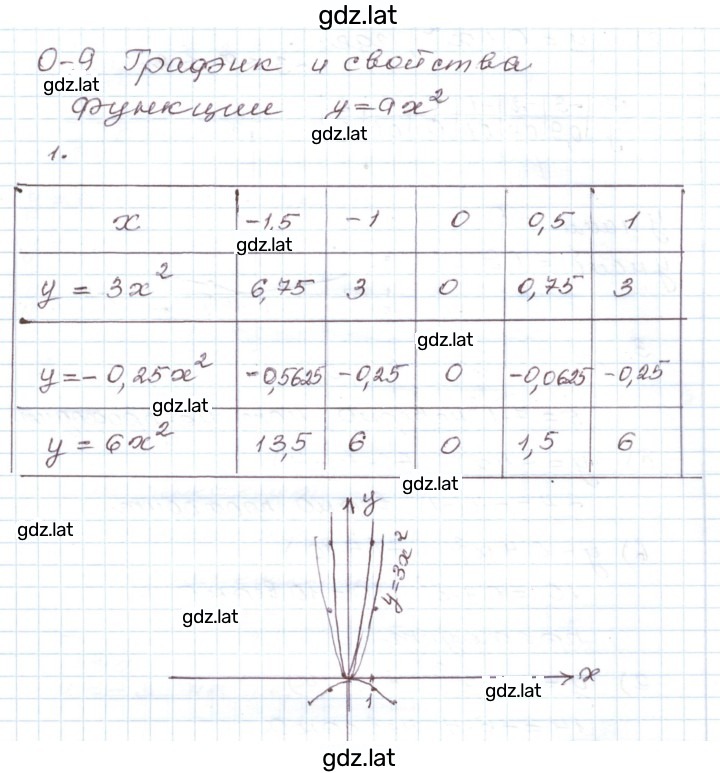 gdz.lat
О-9 График и свойства
gdz.lat
функции y=ax²
gdz.lat
1.
x -1,5 -1 0 0,5 1
gdz.lat
y = 3x² 6,75 3 0 0,75 3
gdz.lat
y=-0,25x² -0,5625 -0,25 0 -0,0625 -0,25
gdz.lat
y = 6x² 13,5 6 0 1,5 6
gdz.lat
y
gdz.lat
y=3x²
gdz.lat
x
gdz.lat
1
gdz.lat